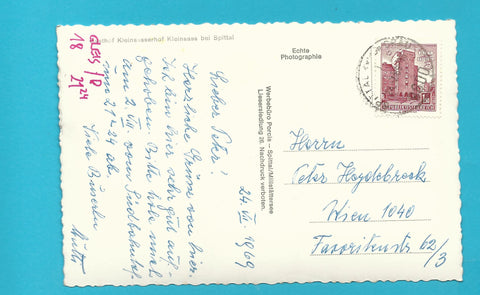 Gasthof Kleinsasserhof Kleinsass bei Spittal
GLEIS/D
18
21 24
Echte
Photographie
Werbebüro Porcia — Spittal/Millstättersee
Liesersiedlung 26. Nachdruck verboten.
24. VI. 1969
Lieber Peter!
Herzliche Grüsse von hier.
Ich bin hier sehr gut auf-
gehoben. Bitte hole mich
am 2. VII vom Südbahnhof
um 21h 24 ab.
Viele Busserln
Mutti
REPUBLIK ÖSTERREICH
Herrn
Peter Heydebreck
Wien 1040
Favoritenstr 62/3